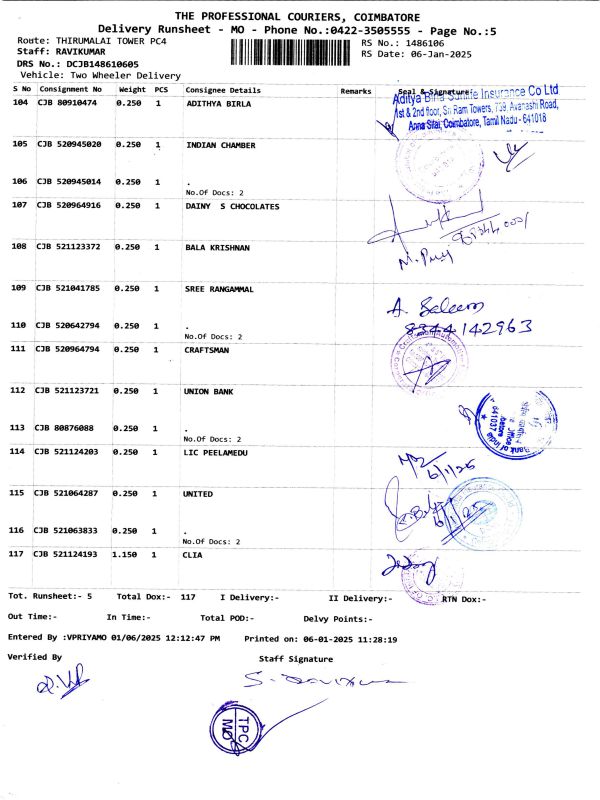 THE PROFESSIONAL COURIERS, COIMBATORE
Delivery Runsheet - MO - Phone No.:0422-3505555 - Page No.:5
Route: THIRUMALAI TOWER PC4 RS No.: 1486106
Staff: RAVIKUMAR RS Date: 06-Jan-2025
DRS No.: DCJB148610605
Vehicle: Two Wheeler Delivery
S No Consignment No Weight PCS Consignee Details Remarks Seal & Signature
104 CJB 80910474 0.250 1 ADITHYA BIRLA
Aditya Birla Sunlife Insurance Co Ltd
1st & 2nd floor, Sri Ram Towers, 739, Avanashi Road,
Anna Silai, Coimbatore, Tamil Nadu - 641018
105 CJB 520945020 0.250 1 INDIAN CHAMBER
106 CJB 520945014 0.250 1 .
No.Of Docs: 2
107 CJB 520964916 0.250 1 DAINY S CHOCOLATES
108 CJB 521123372 0.250 1 BALA KRISHNAN
109 CJB 521041785 0.250 1 SREE RANGAMMAL
A. Saleem
110 CJB 520642794 0.250 1 . 8344142963
No.Of Docs: 2
111 CJB 520964794 0.250 1 CRAFTSMAN
112 CJB 521123721 0.250 1 UNION BANK
113 CJB 80876088 0.250 1 .
Bank of India
641037
No.Of Docs: 2
114 CJB 521124203 0.250 1 LIC PEELAMEDU
6/1/25
115 CJB 521064287 0.250 1 UNITED
6/1/25
116 CJB 521063833 0.250 1 .
No.Of Docs: 2
117 CJB 521124193 1.150 1 CLIA
Tot. Runsheet:- 5 Total Dox:- 117 I Delivery:- II Delivery:- RTN Dox:-
Out Time:- In Time:- Total POD:- Delvy Points:-
Entered By :VPRIYAMO 01/06/2025 12:12:47 PM Printed on: 06-01-2025 11:28:19
Verified By Staff Signature
TPC
MO